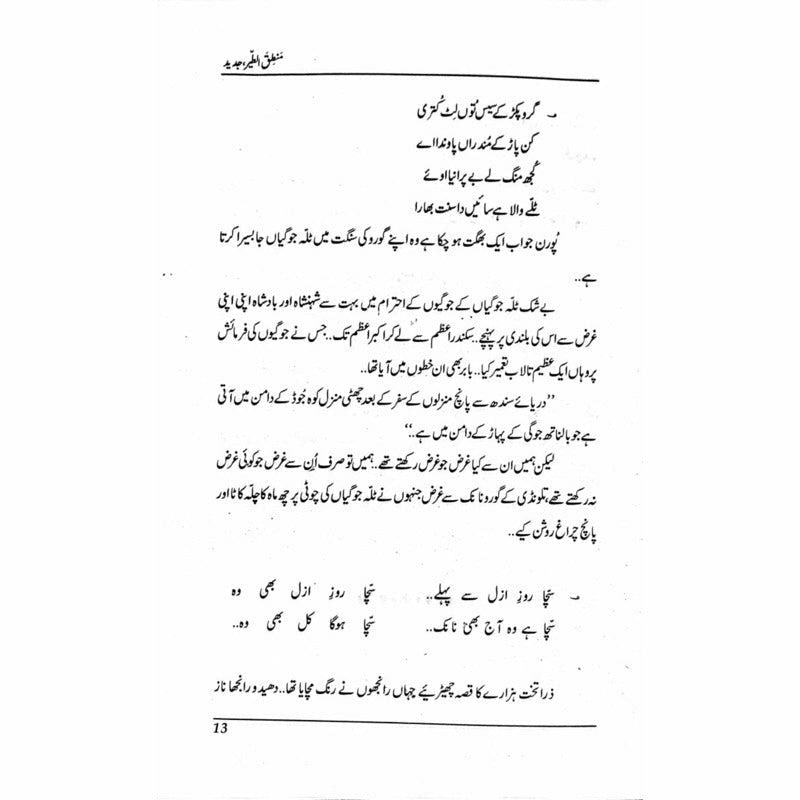 منطق الطّیر، جدید
گرو پکڑ کے سیس تُوں لِٹ کُتری
کن پاڑ کے مُندراں پاوندا اے
کُجھ منگ لے بے پرانیا اوئے
ٹِلّے والا ہے سائیں داسنت بھارا
پُورن جو اب ایک بھگت ہو چکا ہے وہ اپنے گورو کی سنگت میں ٹلہ جوگیاں جا بسیرا کرتا
ہے..
بے شک ٹلہ جوگیاں کے جوگیوں کے احترام میں بہت سے شہنشاہ اور بادشاہ اپنی اپنی
غرض سے اس کی بلندی پر پہنچے.. سکندر اعظم سے لے کر اکبر اعظم تک.. جس نے جوگیوں کی فرمائش
پر وہاں ایک عظیم تالاب تعمیر کیا.. بابر بھی ان خطوں میں آیا تھا..
”دریائے سندھ سے پانچ منزلوں کے سفر کے بعد چھٹی منزل کوہ جُوڈ کے دامن میں آتی
ہے جو بالناتھ جوگی کے پہاڑ کے دامن میں ہے..“
لیکن ہمیں ان سے کیا غرض جو غرض رکھتے تھے.. ہمیں تو صرف اُن سے غرض جو کوئی غرض
نہ رکھتے تھے، تلونڈی کے گورو نانک سے غرض جنہوں نے ٹلہ جوگیاں کی چوٹی پر چھ ماہ کا چلّہ کاٹا اور
پانچ چراغ روشن کیے..
سچّا روزِ ازل سے پہلے.. سچّا روزِ ازل بھی وہ
سچّا ہے وہ آج بھی نانک.. سچّا ہوگا کل بھی وہ..
ذرا تخت ہزارے کا قصہ چھیڑئیے جہاں رانجھوں نے رنگ مچایا تھا.. دھیدو رانجھا ناز
13